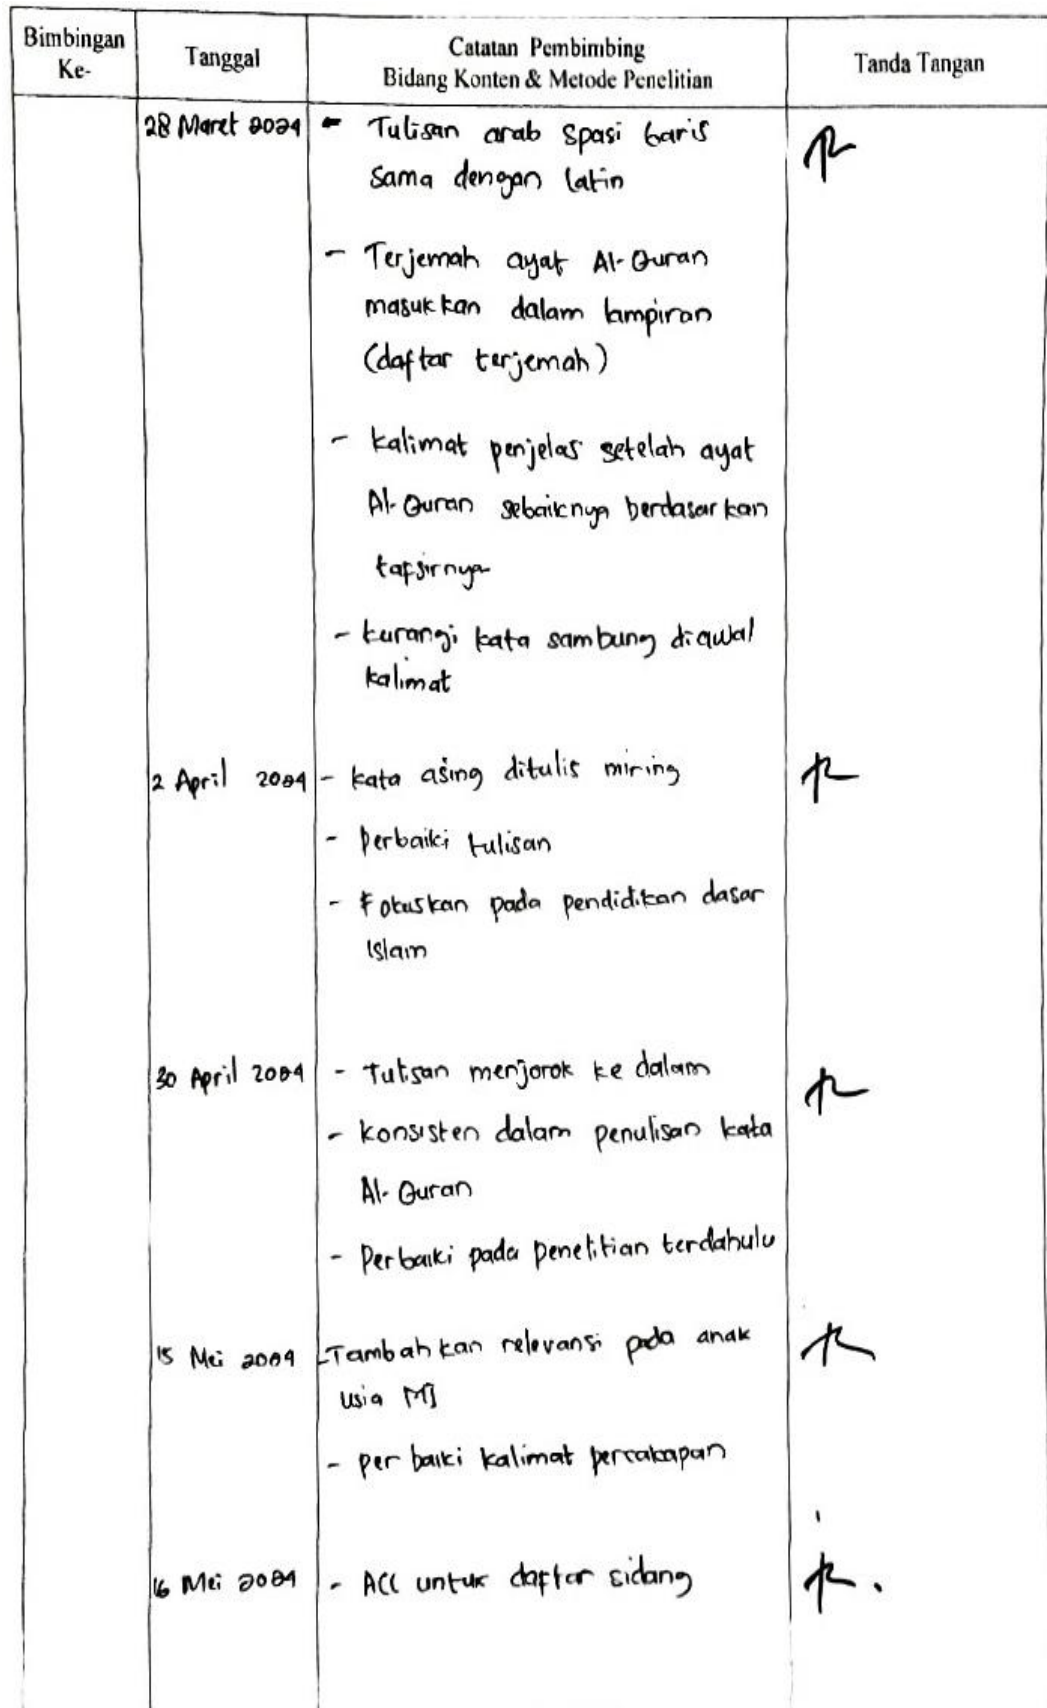 Bimbingan Ke-
Tanggal
Catatan Pembimbing
Bidang Konten & Metode Penelitian
Tanda Tangan
28 Maret 2024
- Tulisan arab spasi baris
sama dengan latin
- Terjemah ayat Al-Quran
masukkan dalam lampiran
(daftar terjemah)
- kalimat penjelas setelah ayat
Al-Quran sebaiknya berdasarkan
tafsirnya
- kurangi kata sambung diawal
kalimat
2 April 2024
- kata asing ditulis miring
- perbaiki tulisan
- Fokuskan pada pendidikan dasar
Islam
30 April 2024
- Tulisan menjorok ke dalam
- konsisten dalam penulisan kata
Al-Quran
- Perbaiki pada penelitian terdahulu
15 Mei 2024
- Tambahkan relevansi pada anak
usia MI
- perbaiki kalimat percakapan
16 Mei 2024
- ACC untuk daftar sidang